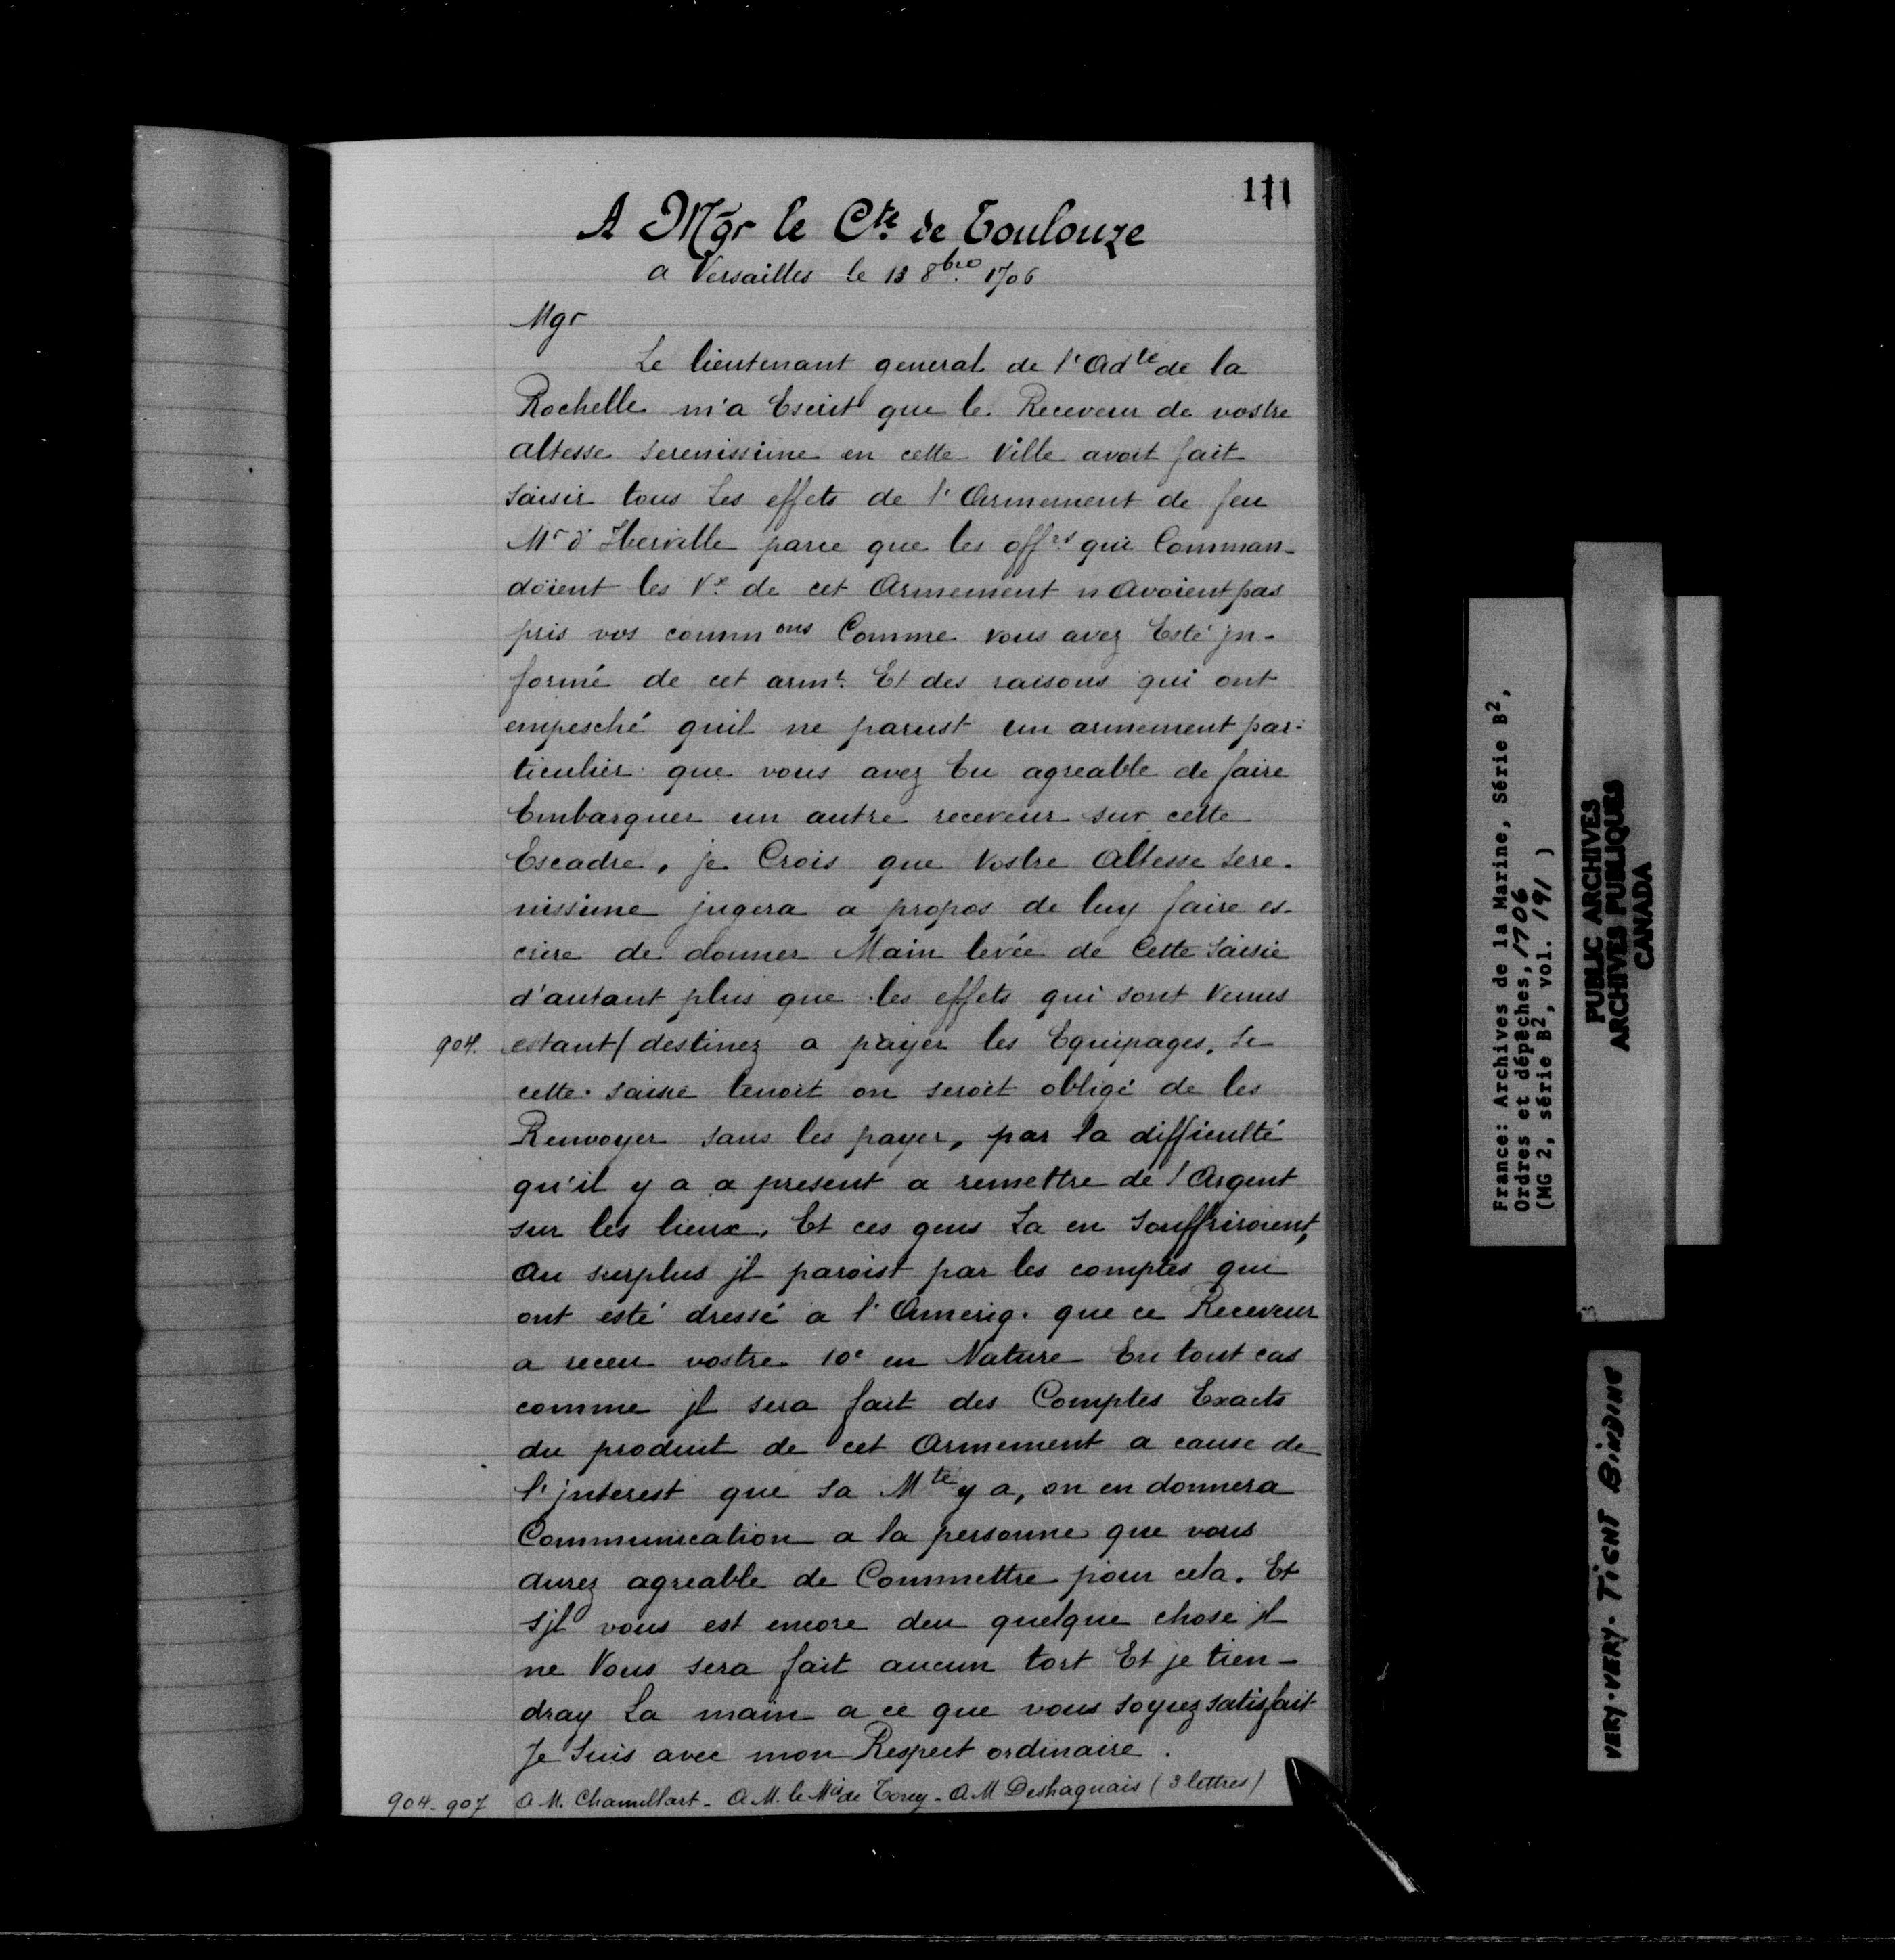 171
A Mgr le Cte de Toulouze
a Versailles le 13 8bre 1706
Mgr
Le lieutenant general de l'Adté de la
Rochelle m'a Escrit que le Receveur de vostre
altesse serenissime en cette Ville avoit fait
saisir tous les effets de l'Armement de feu
Mr d'Iberville parce que les offrs qui Comman-
doient les Vx de cet Armement n'Avoient pas
pris vos commons Comme vous avez Esté jn-
formé de cet armt. Et des raisons qui ont
empesché quil ne parust un armement par-
ticulier que vous avez Eu agreable de faire
Embarquer un autre receveur sur cette
Escadre, je Crois que Vostre Altesse sere-
nissime jugera a propos de luy faire es-
crire de donner Main levée de Cette saisie
d'autant plus que les effets qui sont venus
904. estant/ destinez a payer les Equipages, si
cette saisie tenoit on seroit obligé de les
Renvoyer sans les payer, par la difficulté
qu'il y a a present a remettre de l'Argent
sur les lieux, Et ces gens la en souffriroient,
Au surplus jl paroist par les comptes qui
ont esté dressé a l'Ameriq. que ce Receveur
a receu vostre 10e en Nature En tout cas
comme jl sera fait des Comptes Exacts
du produit de cet Armement a cause de
l'jnterest que sa Mté y a, on en donnera
Communication a la personne que vous
aurez agreable de Commettre pour cela. Et
sjl vous est encore deu quelque chose jl
ne Vous sera fait aucun tort Et je tien-
dray La main a ce que vous soyez satisfait
Je suis avec mon Respect ordinaire.
904-907 A M. Chamillart - A M. le Mis de Torcy - A M Deshaguais (3 lettres)
France: Archives de la Marine, Série B2,
Ordres et dépêches, 1706
(MG 2, série B2, vol. 191 )
PUBLIC ARCHIVES
ARCHIVES PUBLIQUES
CANADA
3
VERY-VERY-TIGHT BINDING